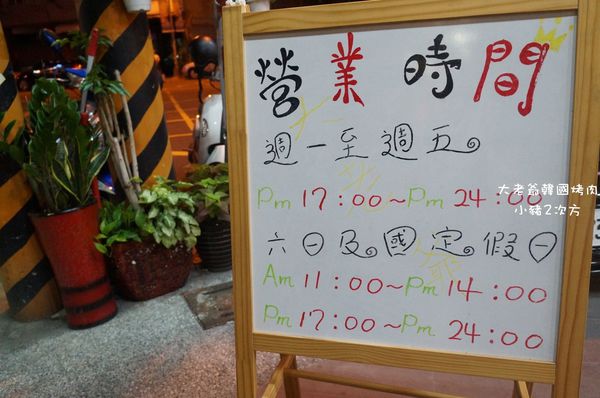 營業時間
週一至週五
Pm 17:00~Pm 24:00
六日及國定假日
Am 11:00~Pm 14:00
Pm 17:00~Pm 24:00
大老爺韓國烤肉
小豬2次方